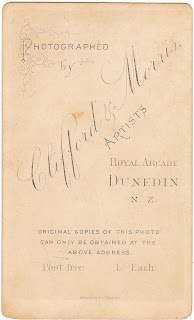 PHOTOGRAPHED
by
Clifford & Morris,
ARTISTS
ROYAL ARCADE
DUNEDIN
N. Z.
ORIGINAL COPIES OF THIS PHOTO
CAN ONLY BE OBTAINED AT THE
ABOVE ADDRESS.
Post free 1/- Each